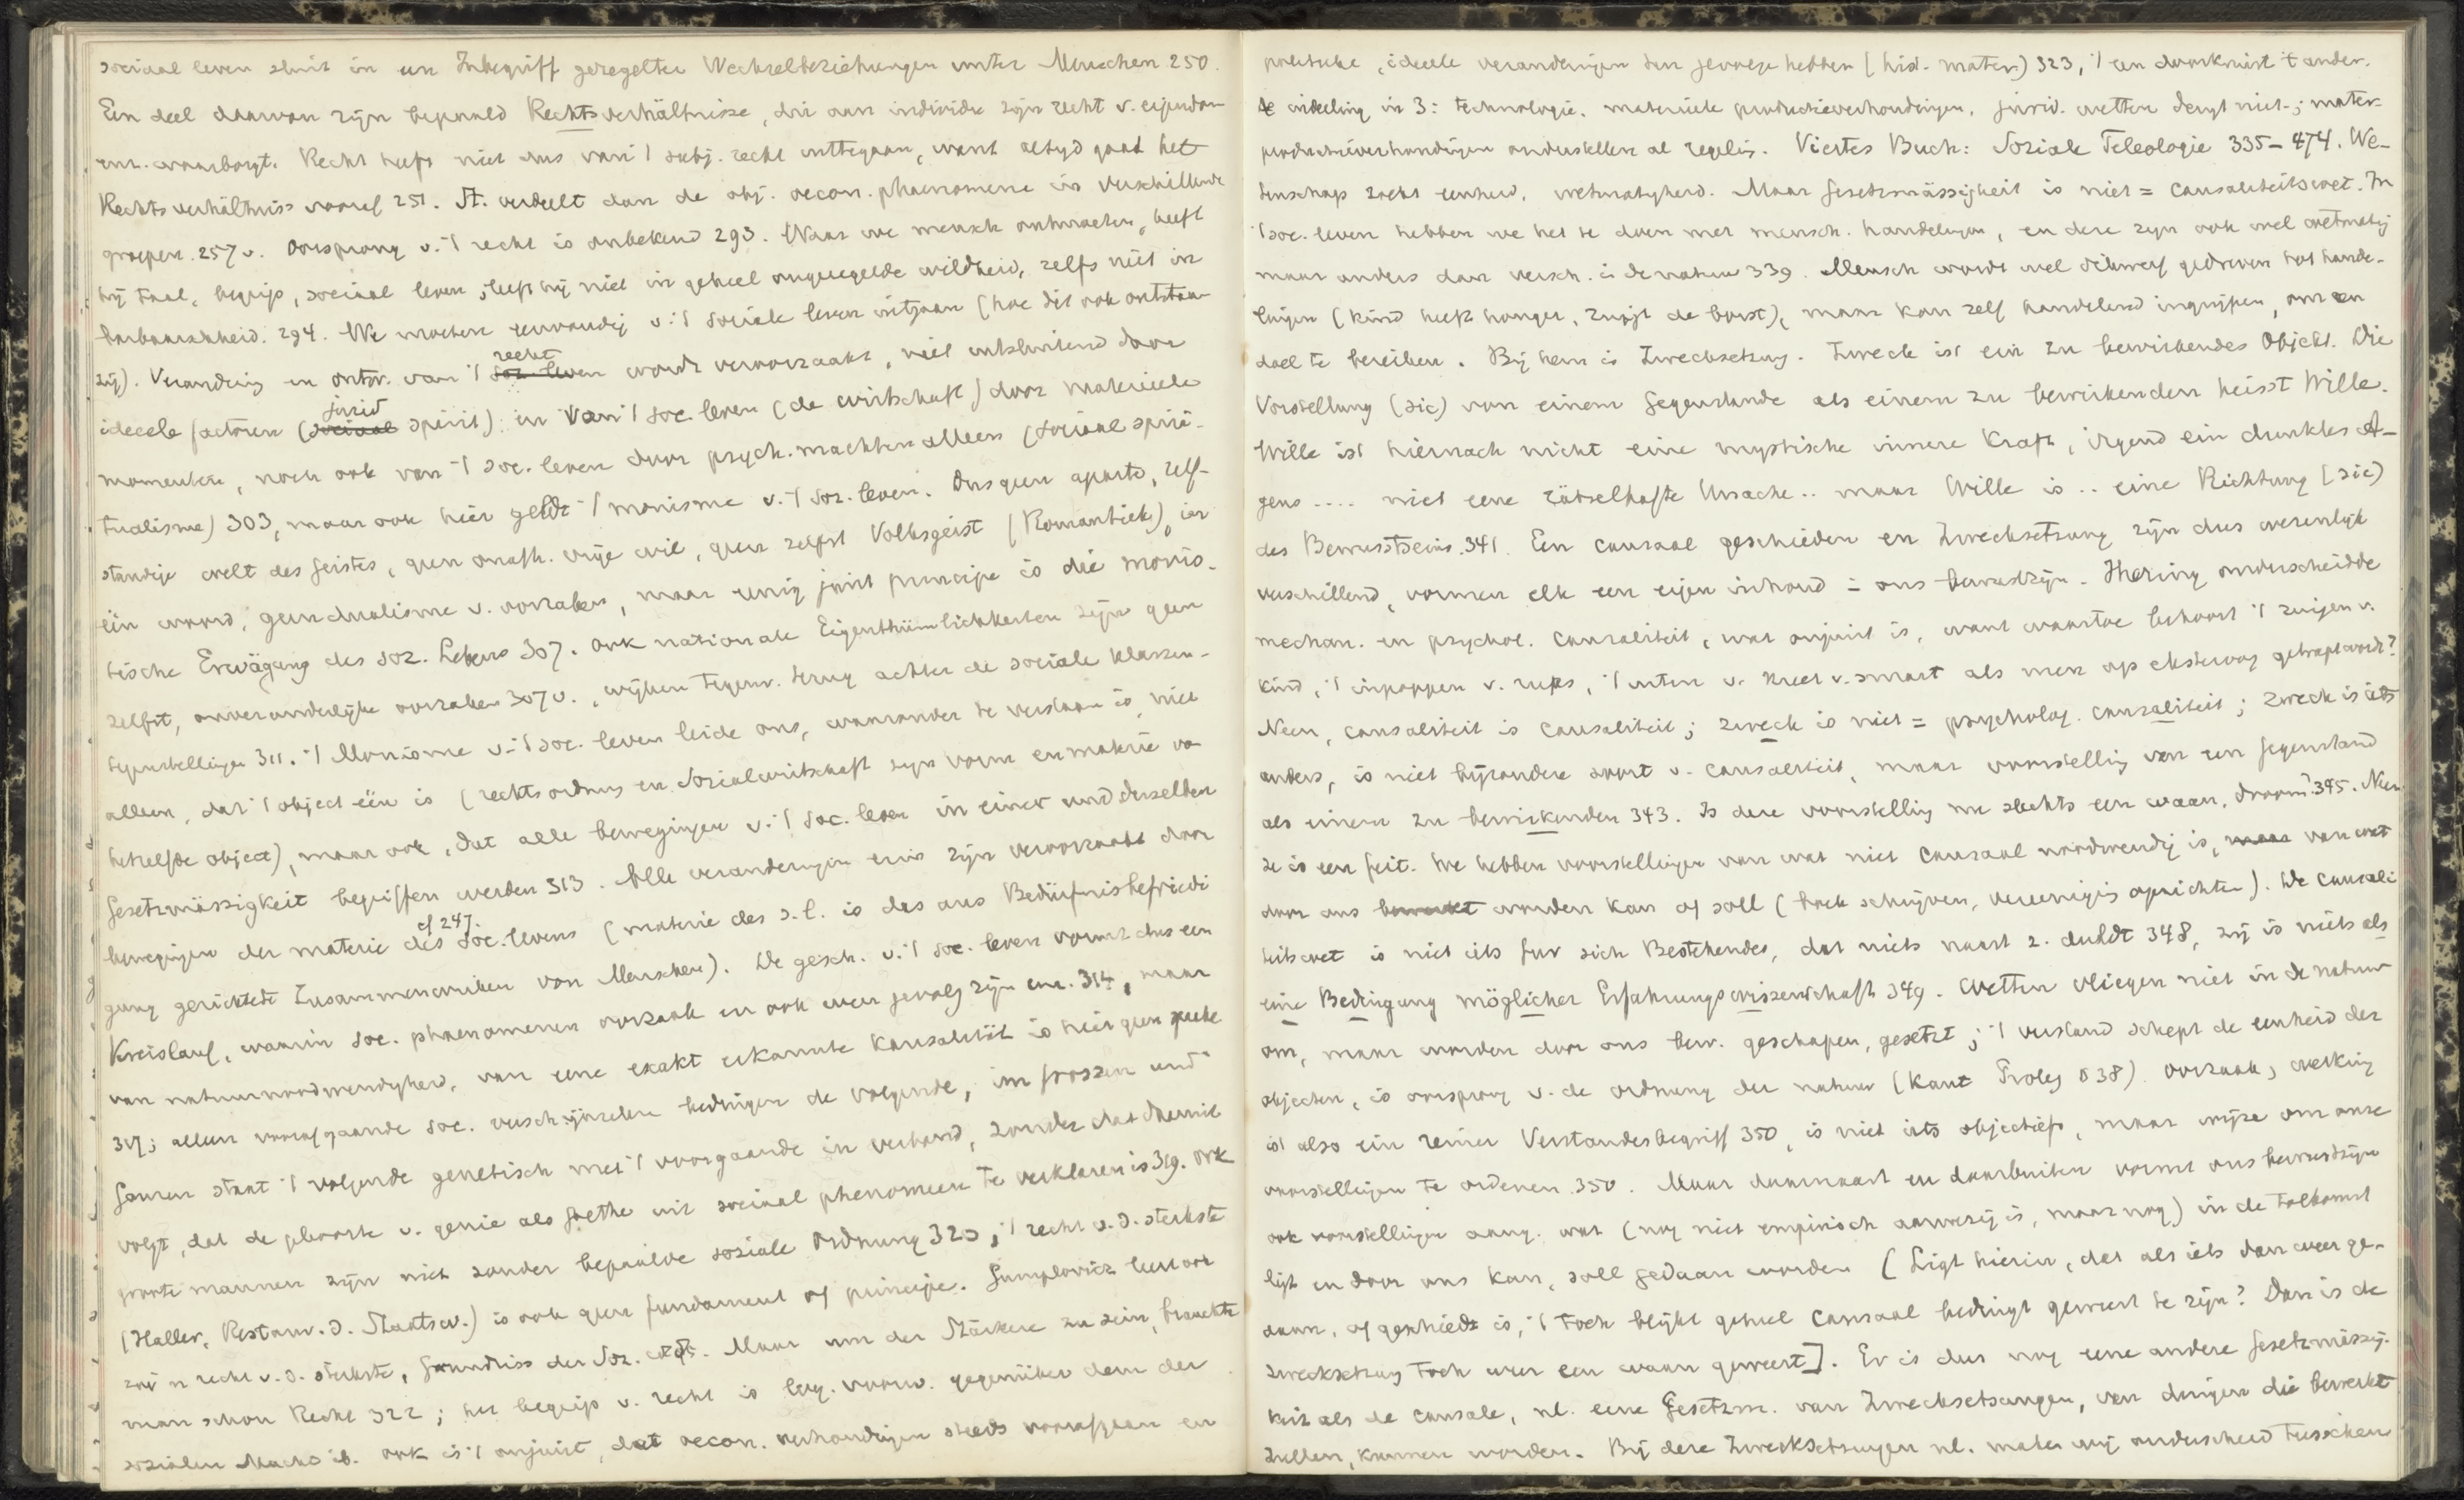 sociaal leven sluit in un Inbegriff geregelter Wechselbeziehungen unter Menschen 250.
Een deel daarvan zijn bepaald Rechtsverhältnisse, die aan individu zijn recht v. eigendom
enz. waarborgt. Recht heeft niet dus van 't subj. recht uittegaan, want altijd gaat het
Rechtsverhältniss vooraf 251. St. verdeelt dan de obj. oecon. phaenomene in verschillende
groepen 257 v. Oorsprong v. 't recht is onbekend 293. Waar we mensch ontmoeten, heeft
hij taal, begrip, sociaal leven, leeft hij niet in geheel ongeregelde wildheid, zelfs niet in
barbaarschheid. 294. We moeten eenvoudig v. 't sociale leven uitgaan (hoe dit ook ontstaan
zij). Verandering en ontw. van 't recht wordt veroorzaakt, niet uitsluitend door
ideeele factoren (jurid spirit) en van 't soc. leven (de wirtschaft) door materieele
momenten, noch ook van 't soc. leven door psych. machten alleen (sociaal spiri-
tualisme) 303, maar ook hier geldt 't monisme v. 't soz. leven. Dus geen aparte, zelf-
standige welt des Geistes, geen onafh. vrije wil, geen zelfst Volksgeist (Romantiek), in
één woord, geen dualisme v. oorzaken, maar eenig juist principe is die monis-
tische Erwägung des soz. Lebens 307. Ook nationale Eigenthümlichkeiten zijn geen
zelfst, onveranderlijke oorzaken 307 v., wijken tegenw. terug achter de sociale klassen-
tegenstellingen 311. 't Monisme v. 't soc. leven leide ons, waaronder te verstaan is, niet
alleen, dat 't object één is (rechtsordnung en Sozialwirtschaft zijn vorm en materie van
hetzelfde object), maar ook, dat alle bewegingen v. 't soc. leven in einer und derselben
Gesetzmässigkeit begriffen werden 313. Alle veranderingen erin zijn veroorzaakt door
bewegingen der materie des soc. levens cf 247. (materie des s. l. is das aus Bedürfnisbefriedi
gung gerichtete Zusammenwirken von Menschen). De gesch. v. 't soc. leven vormt dus een
Kreislauf, waarin soc. phaenomenen oorzaak en ook weer gevolg zijn enz. 314, maar
van natuurnoodwendigheid, van eene exakt erkannte Kausalität is hier geen
317; alleen voorafgaande soc. verschijnselen bedingen de volgende, im grossen und
Ganzen staat 't volgende genetisch met 't voorgaande in verband, zonder dat daaruit
volgt, dat de geboorte v. genie als Goethe uit sociaal phenomeen te verklaren is 319. Ook
groote mannen zijn niet zonder bepaalde soziale Ordnung 320; 't recht v. d. sterkste
(Haller, Restaur. d. Staatsw.) is ook geen fundament of principe. Gumplovicz leert ook
zoo'n recht v. d. sterkste, Grundriss der Soz. Maar um der Stärkere zu sein, brauchte
man schon Recht 322; het begrip v. recht is log. voorw. gegenüber dem der
sozialen Macht ib. Ook is 't onjuist, dat oecon. verhoudingen steeds voorafgaan en
politische, ideeele veranderingen ten gevolge hebben (hist. mater) 323, 't een doorkruist 't ander.
De indeeling in 3: technologie, materieele productieverhoudingen, jurid. wetten deugt niet; mater.
productieverhoudingen onderstellen al regeling. Viertes Buch: Soziale Teleologie 335-474. We-
tenschap zoekt eenheid, wetmatigheid. Maar Gesetzmässigkeit is niet = causaliteitswet. In
't soc. leven hebben we het te doen met mensch. handelingen, en deze zijn ook wel wetmatig
maar anders dan versch. in de natuur 339. Mensch wordt wel gedreven tot hande-
lingen (kind heeft honger, zuigt de borst), maar kan zelf handelend ingrijpen, om een
doel te bereiken. Bij hem is Zwecksetzung. Zweck ist ein zu bewirkendes Objekt. Die
Vorstellung (sic) von einem Gegenstande als einem zu bewirkenden heisst Wille.
Wille ist hiernach nicht eine mystische innere Kraft, irgend ein dunkles A-
gens .... niet eene rätselhafte Ursache .. maar Wille is .. eine Richtung (sic)
des Bewusstseins 341. Een causaal geschieden en Zwecksetzung zijn dus wezenlijk
verschillend, vormen elk een eigen inhoud = ons bewustzijn. Ihering onderscheidde
mechan. en psychol. causaliteit, wat onjuist is, want waartoe behoort 't zuigen v.
kind, 't inpoppen v. rups, 't uiten v. kreet v. smart als men op eksteroog getrapt wordt?
Neen, causaliteit is causaliteit; zweck is niet = psycholog. causaliteit; Zweck is iets
anders, is niet bijzondere soort v. causaliteit, maar voorstelling van een Gegenstand
als einem zu bewirkenden 343. Is deze voorstelling nu slechts een waan, droom? 345. Neen
ze is een feit. We hebben voorstellingen van wat niet causaal noodwendig is, van wat
door ons worden kan of soll (boek schrijven, vereeniging oprichten). De causali
teitswet is niet iets für sich Bestehendes, dat niets naast z. duldt 348, zij is niets als
eine Bedingung möglicher Erfahrungswissenschaft 349. Wetten vliegen niet in de natuur
om, maar worden door ons bew. geschapen, gesetzt; 't verstand schept de eenheid der
objecten, is oorsprong v. de ordnung der natuur (Kant Proleg § 38). Oorzaak, werking
ist also ein reiner Verstandesbegriff 350, is niet iets objectiefs, maar wijze om onze
voorstellingen te ordenen 350. Maar daarnaast en daarbuiten vormt ons bewustzijn
ook voorstellingen aang. wat (nog niet empirisch aanwezig is, maar nog) in de toekomst
ligt en door ons kan, soll gedaan worden (Ligt hierin, dat als iets dan weer ge-
daan, of geschiedt is, 't toch blijkt geheel causaal bedingt geweest te zijn? Dan is de
zwecksetzung toch weer een waan geweest]. Er is dus nog eene andere Gesetzmässig-
keit als de causale, nl. eene Gesetzm. van Zwecksetzungen, van dingen die bewerkt
zullen, kunnen worden. Bij deze Zwecksetzungen nl. maken wij onderscheid tusschen